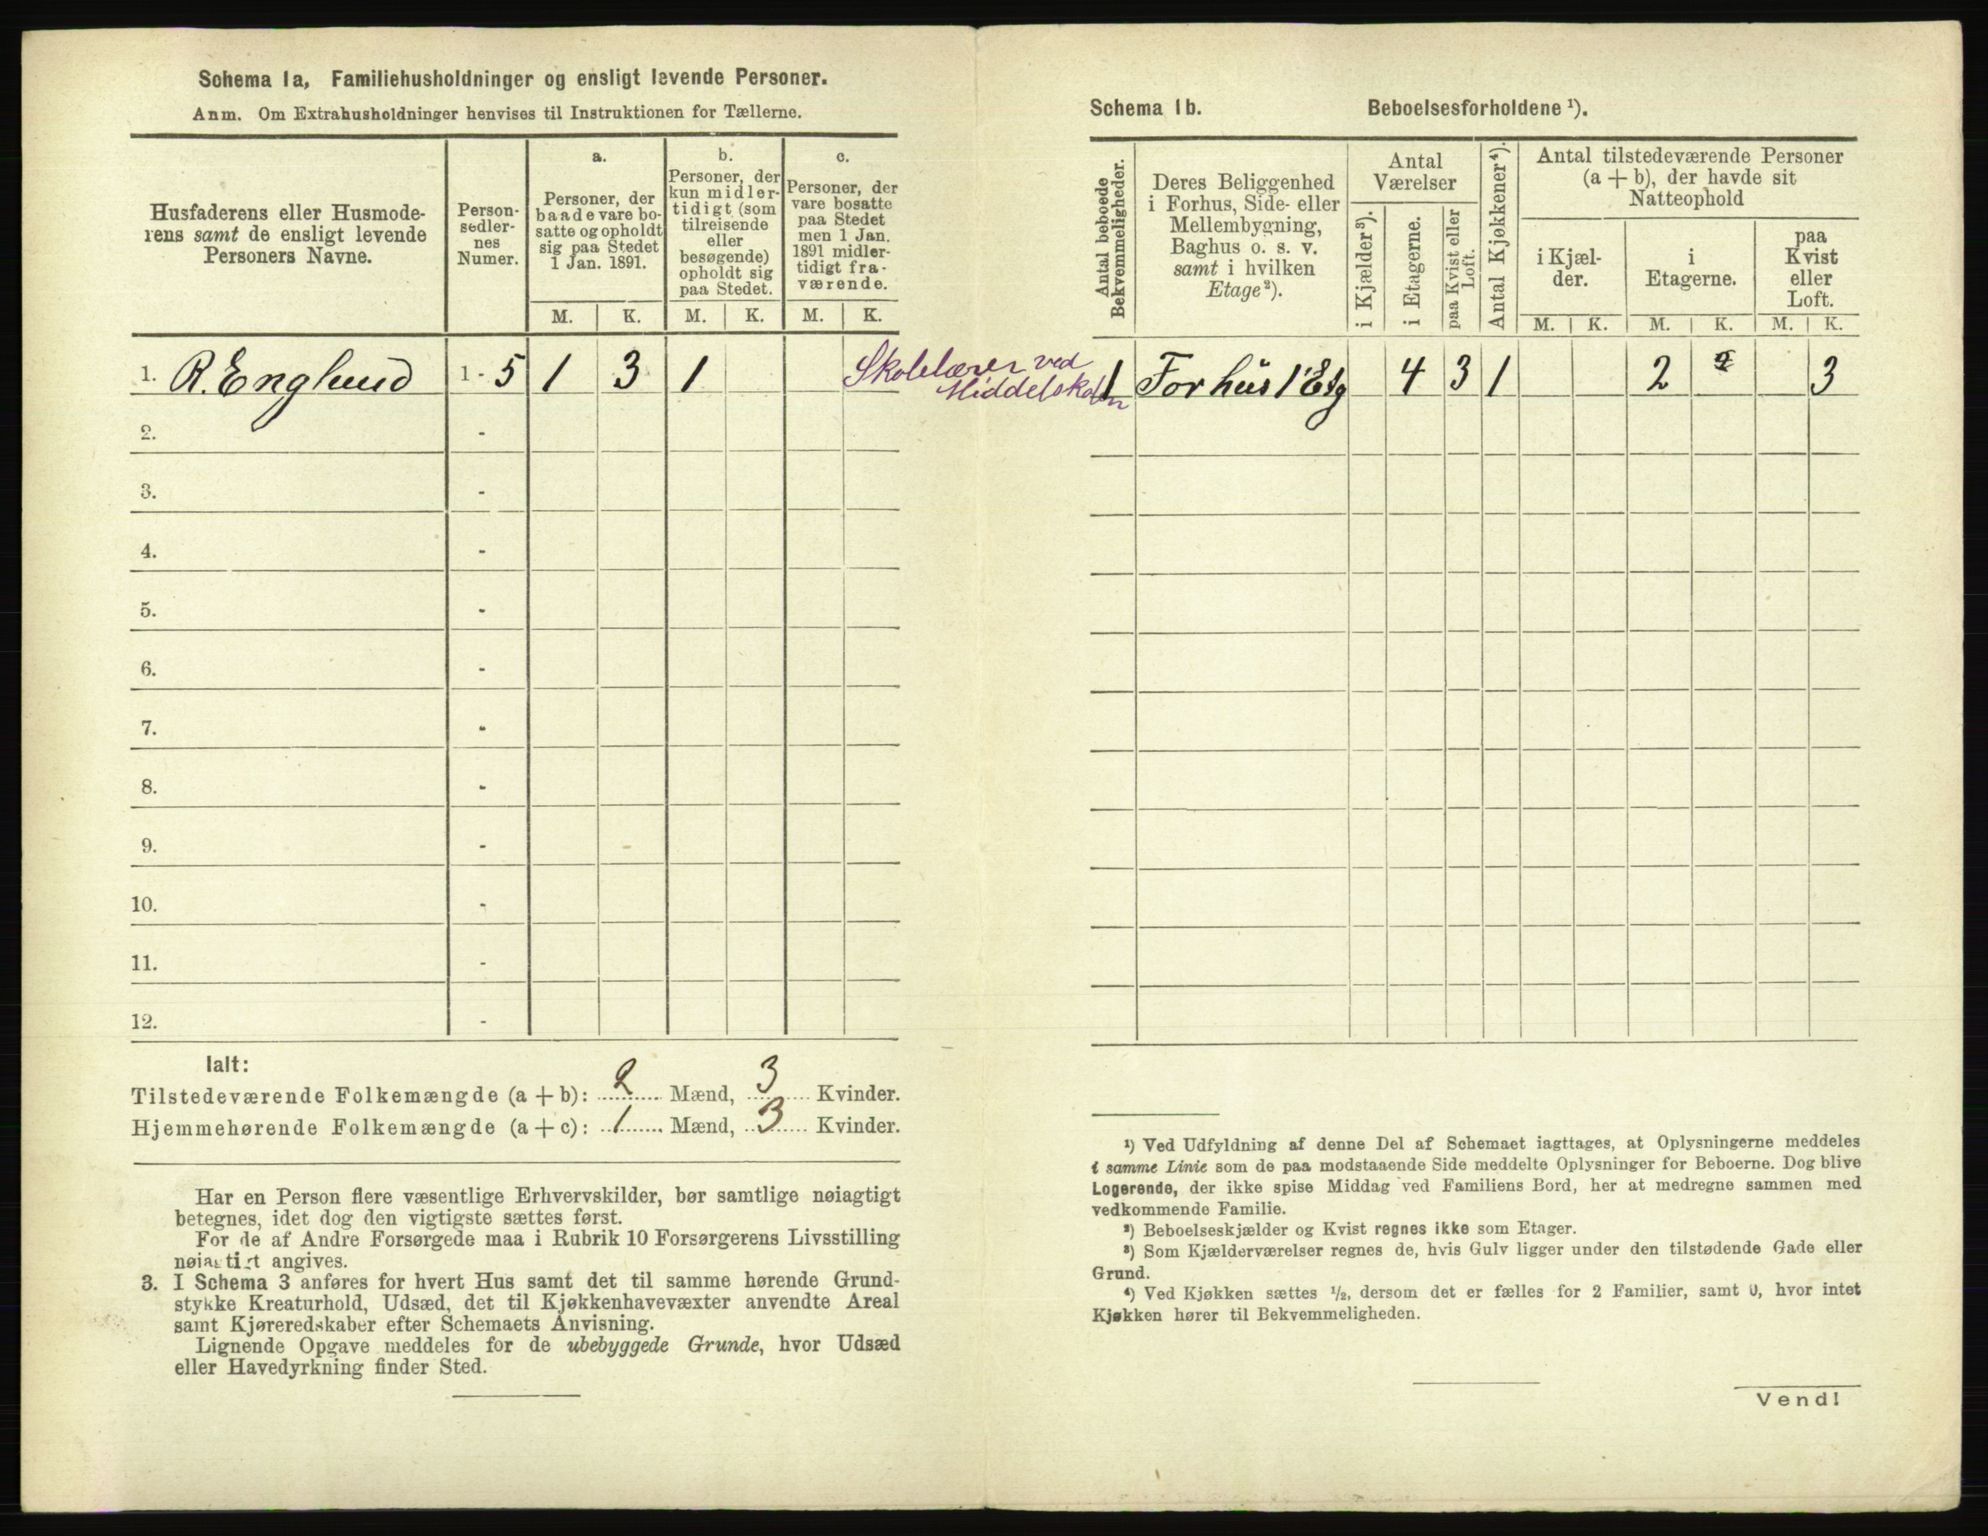 Schema 1a, Familiehusholdninger og ensligt levende Personer.
Anm. Om Extrahusholdninger henvises til Instruktionen for Tællerne.
Husfaderens eller Husmoderens samt de ensligt levende Personers Navne.
Personsedlernes Numer.
a.
Personer, der baade vare bosatte og opholdt sig paa Stedet 1 Jan. 1891.
b.
Personer, der kun midlertidigt (som tilreisende eller besøgende) opholdt sig paa Stedet.
c.
Personer, der vare bosatte paa Stedet men 1 Jan. 1891 midlertidigt fraværende.
M. K. M. K. M. K.
1. R. Englund 1 - 5 1 3 1
Skolelærer ved
Middelskolen
2. -
3. -
4. -
5. -
6. -
7. -
8. -
9. -
10. -
11. -
12. -
Ialt:
Tilstedeværende Folkemængde (a + b): 2 Mænd, 3 Kvinder.
Hjemmehørende Folkemængde (a + c): 1 Mænd, 3 Kvinder.
Har en Person flere væsentlige Erhvervskilder, bør samtlige nøiagtigt
betegnes, idet dog den vigtigste sættes først.
For de af Andre Forsørgede maa i Rubrik 10 Forsørgerens Livsstilling
nøiagtigt angives.
3. I Schema 3 anføres for hvert Hus samt det til samme hørende Grund-
stykke Kreaturhold, Udsæd, det til Kjøkkenhavevæxter anvendte Areal
samt Kjøreredskaber efter Schemaets Anvisning.
Lignende Opgave meddeles for de ubebyggede Grunde, hvor Udsæd
eller Havedyrkning finder Sted.
Schema 1b. Beboelsesforholdene ¹).
Antal beboede Bekvemmeligheder.
Deres Beliggenhed i Forhus, Side- eller Mellembygning, Baghus o. s. v. samt i hvilken Etage²).
Antal Værelser
i Kjælder³).
i Etagerne.
paa Kvist eller Loft.
Antal Kjøkkener⁴).
Antal tilstedeværende Personer (a + b), der havde sit Natteophold
i Kjælder.
i Etagerne.
paa Kvist eller Loft.
M. K. M. K. M. K.
1 Forhüs 1' Etg 4 3 1 2 3
¹) Ved Udfyldning af denne Del af Schemaet iagttages, at Oplysningerne meddeles
i samme Linie som de paa modstaaende Side meddelte Oplysninger for Beboerne. Dog blive
Logerende, der ikke spise Middag ved Familiens Bord, her at medregne sammen med
vedkommende Familie.
²) Beboelseskjælder og Kvist regnes ikke som Etager.
³) Som Kjælderværelser regnes de, hvis Gulv ligger under den tilstødende Gade eller
Grund.
⁴) Ved Kjøkken sættes ½, dersom det er fælles for 2 Familier, samt 0, hvor intet
Kjøkken hører til Bekvemmeligheden.
Vend!